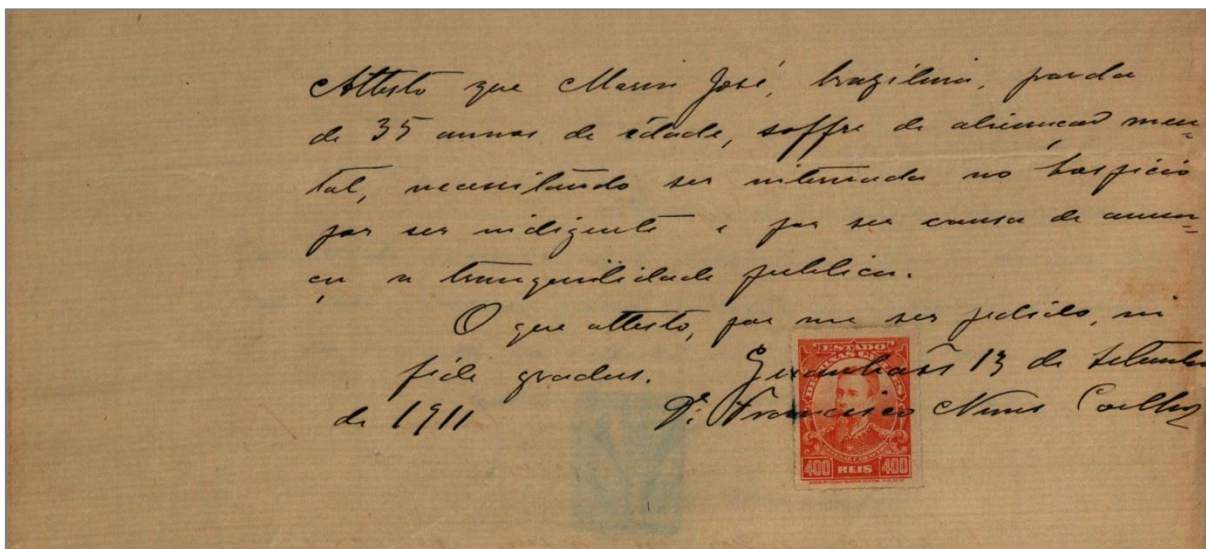 Attesto que Maria José, brazileira, parda
de 35 annos de idade, soffre de alienação men=
tal, necessitando ser internada no hospicio
por ser indigente e por ser causa de amea=
ça a tranquilidade publica.
O que attesto, por me ser pedido, in
fide gradus. Guanhães 13 de Setembro
de 1911 Dr. Francisco Nunes Coelho
ESTADO
DE MINAS GERAES
400 REIS 400